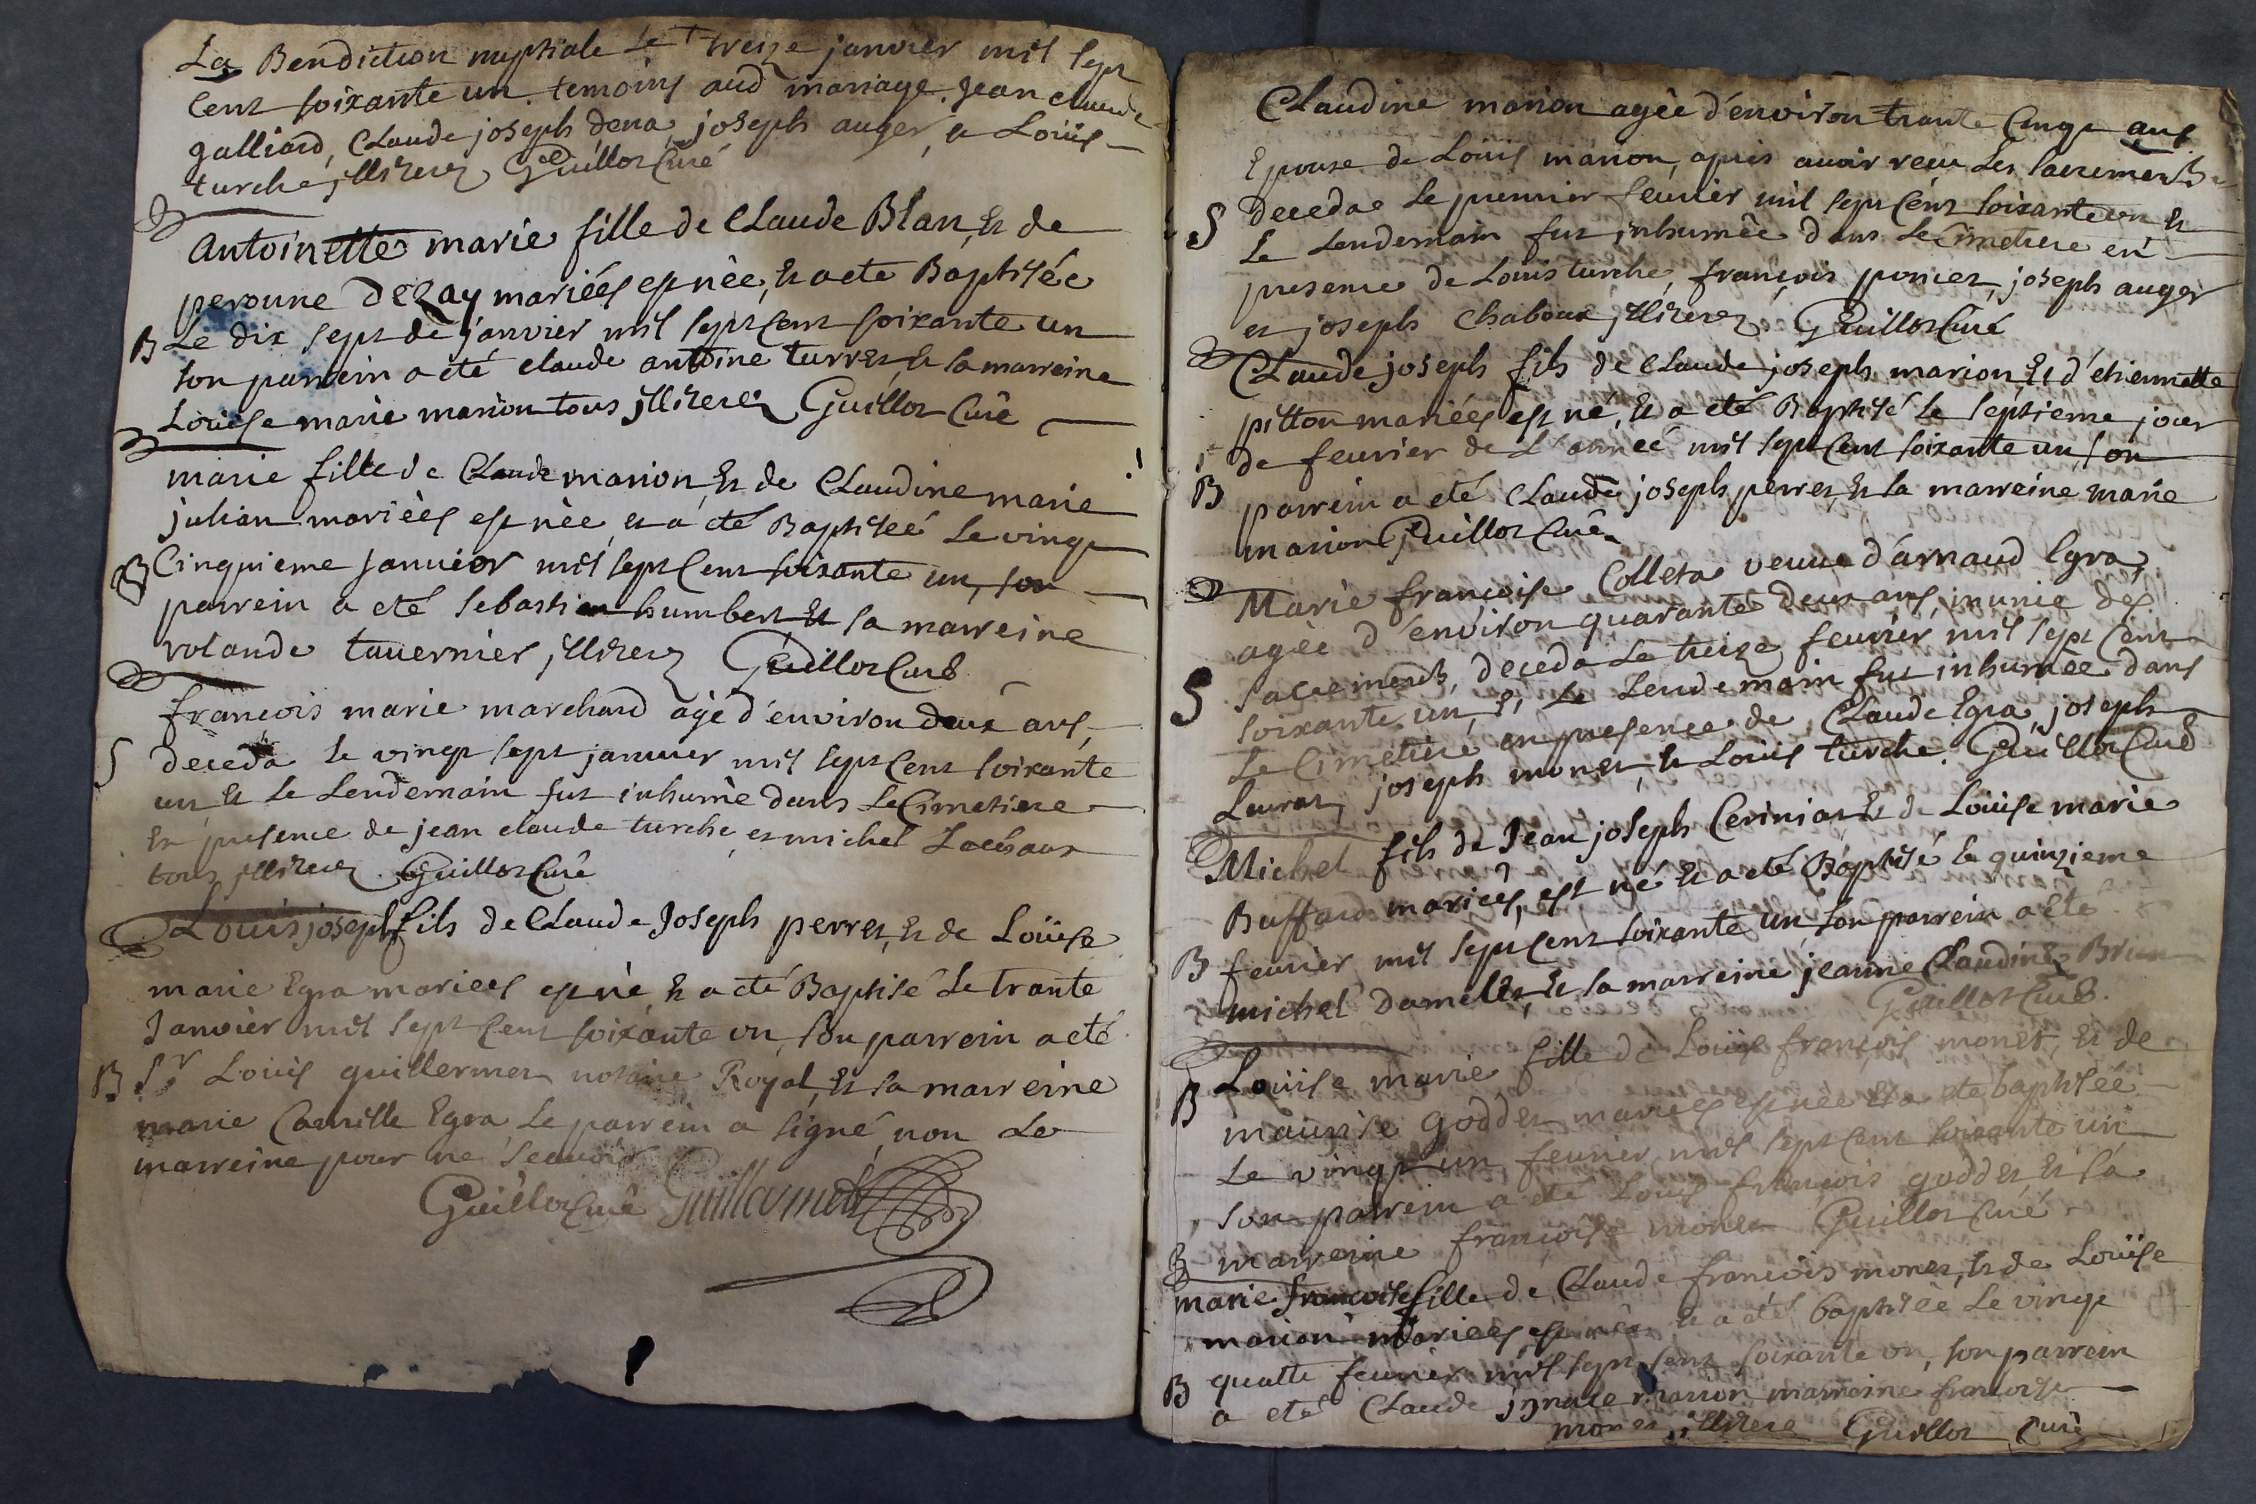 La Bendiction nuptiale le treize janvier mil sept
Cent soixante un. temoins aud mariage. Jean claude
galliard, Claude joseph dena, joseph auger, a Loüis
turche jllitérez Guillot Curé
Antoinette marie fille de Claude Blan, et de
peronne Dezay mariées est née, et a eté Baptisée
B Le dix sept de janvier mil sept Cent soixante un
son parrein a eté claude antoine turrez, et la marreine
Loüise marie marion tous jllitérez Guillot Curé
marie fille de Claude marion, et de Claudine marie
julian mariéés est née, et a été Baptiseé le vingt
B Cinquieme Janvier mil sept Cent soixante un, son
parrein a eté sebastien humbert et la marreine
rolande tavernier, jllitérez Guillot Curé
francois marie marchand agé d'environ deux ans,
S deceda le vingt sept janvier mil sept Cent soixante
un, et le Lendemain fut inhumé dans le Cimetiere
en presence de jean claude turche, et michel
tous jllitérez. Guillot Curé
Loüis joseph fils de Claude Joseph perret, et de Loüise
marie Egra mariées est né, et a eté Baptisé le trante
Janvier mil sept Cent soixante un, son parrein a eté
B Sr Loüis guillermet notaire Royal, et la marreine
marie Camille Egra le parrein a signé, non la
marreine pour ne scavoir
Guillot Curé Guillermet
Claudine marion agée d'environ trante Cinq ans
Epouse de Loüis marion, apris avoir recu Les sacrements
S deceda le premier fevrier mil sept Cent soixante un et
le Lendemain fut inhumée dans le Cimetiere en
presence de Louis turche, françois poncet, joseph auger
et joseph Chaboux, jllitérez. Guillot Curé
Claude joseph fils de Claude joseph marion, et d'etiennette
pitton mariées est né, et a eté Baptisé le septieme jour
de fevrier de L'année mil sept Cent soixante un son
B parrein a eté Claude joseph perret, et la marreine marie
marion Guillot Curé
Marie françoise Colleta veuve d'arnaud Egra,
agée d'environ quarante deux ans, munie des
sacrements, deceda le treize fevrier mil sept Cent
S soixante un, et le Lendemain fut inhumée dans
le Cimetiere en presence de Claude Egra, joseph
Lauraz, joseph monet, et Loüis turche. Guillot Curé
Michel fils de Jean joseph Cerinian et de Loüise marie
Buffard mariées, est né et a eté Baptisé le quinzieme
B fevrier mil sept Cent soixante un, son parrein a eté
michel Damelet, et la marreine jeanne Claudine Brun
Guillot Curé.
Loüise marie fille de Loüis françois monet, et de
B maurise goddet mariées est née et a eté baptisée
le vingt un fevrier mil sept Cent soixante un
son parrein a eté Loüis françois goddet, et la
marreine françoise monet Guillot Curé
marie francoise fille de Claude francois monet, et de Loüise
marion mariées est née et a eté baptisée le vingt
B quatte fevrier mil sept Cent soixante un, son parrein
a eté Claude jgnace marion marreine francoise
monet, jllitére Guillot Curé